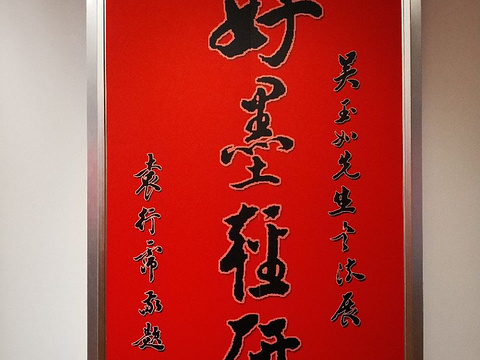 吴玉如先生书法展
好墨轻研
袁行霈敬题